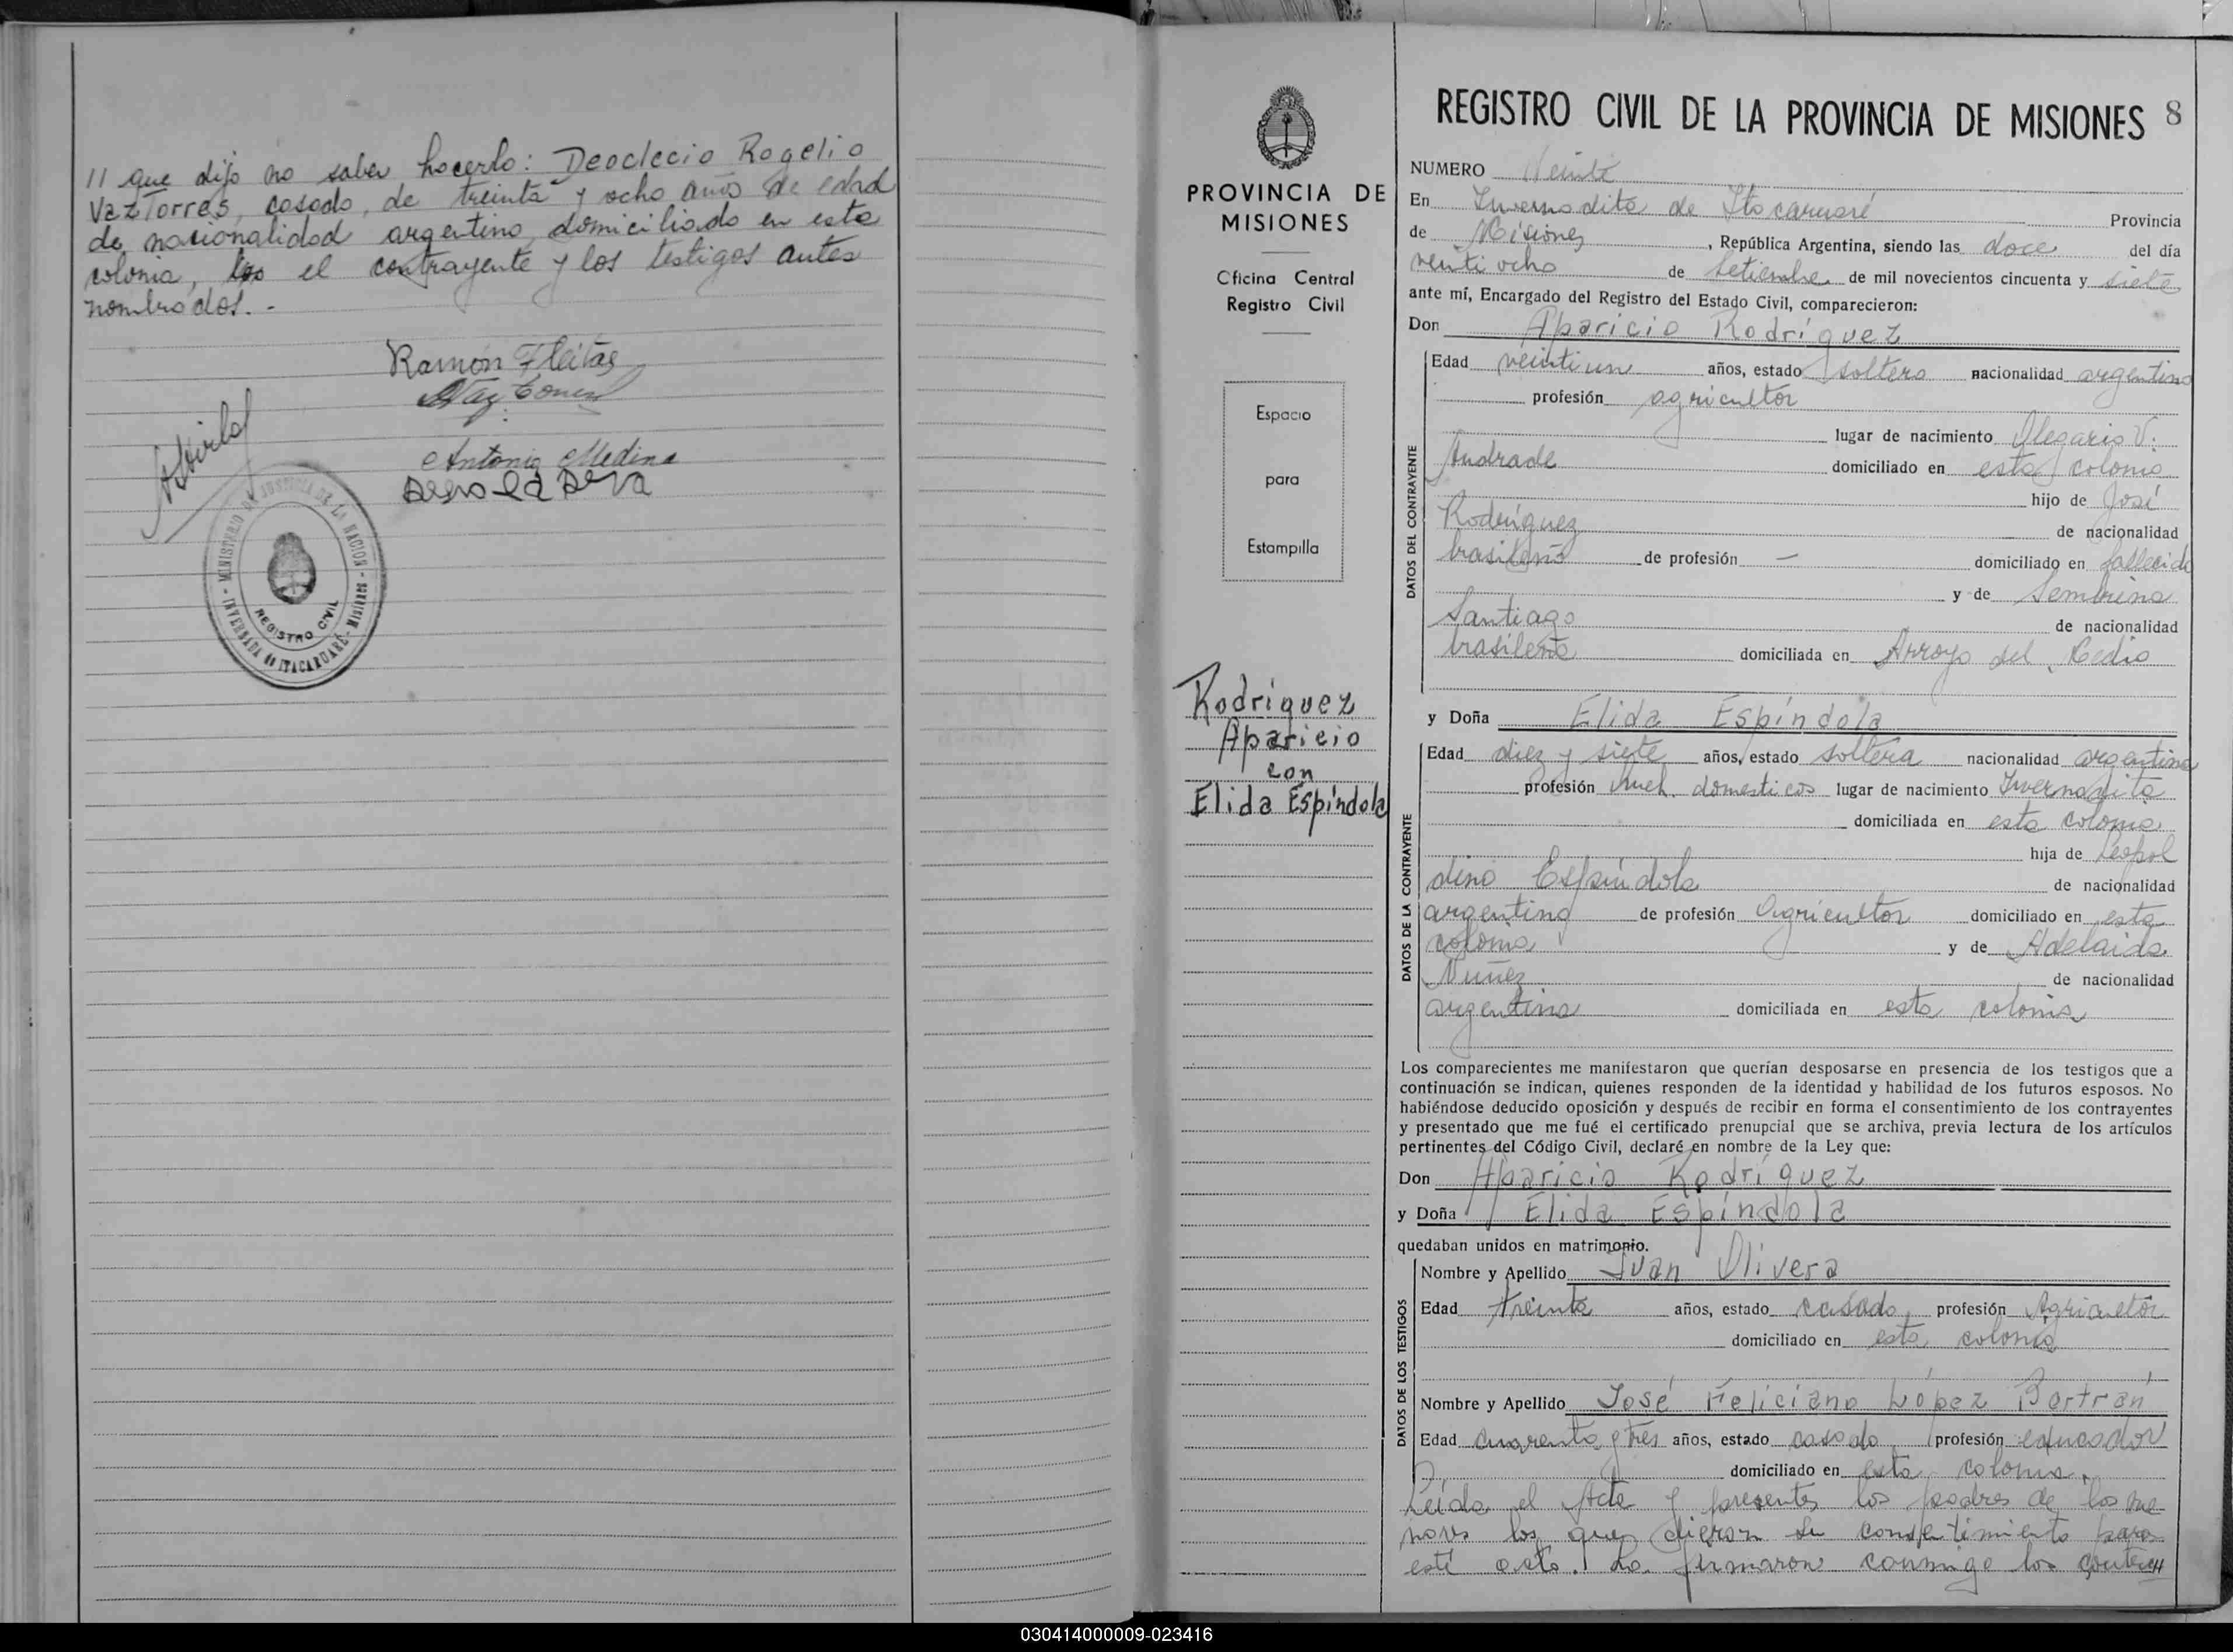 // que dijo no saber hacerlo: Deoclecio Rogelio
Vaz Torres, casado, de treinta y ocho años de edad
de nacionalidad argentino, domiciliado en esta
colonia, el contrayente y los testigos antes
nombrados.-
Ramón Fleitas
Antonio Medina
MINISTERIO DE JUSTICIA DE LA NACION - Misiones
INVERNADA de ITACARUARÉ
REGISTRO CIVIL
PROVINCIA DE
MISIONES
Oficina Central
Registro Civil
Espacio
para
Estampilla
Rodríguez
Aparicio
con
Elida Espíndola
REGISTRO CIVIL DE LA PROVINCIA DE MISIONES 8
NUMERO Veinte
En Invernadita de Itacaruaré Provincia
de Misiones, República Argentina, siendo las doce del día
veintiocho de Setiembre de mil novecientos cincuenta y siete
ante mí, Encargado del Registro del Estado Civil, comparecieron:
Don Aparicio Rodríguez
DATOS DEL CONTRAYENTE
Edad veintiun años, estado soltero nacionalidad argentino
profesión agricultor
lugar de nacimiento Olegario V.
Andrade domiciliado en esta colonia
hijo de José
Rodríguez de nacionalidad
brasileño de profesión — domiciliado en fallecido
y de Sembrina
Santiago de nacionalidad
brasileña domiciliada en Arroyo del Medio
y Doña Elida Espíndola
DATOS DE LA CONTRAYENTE
Edad diez y siete años, estado soltera nacionalidad argentina
profesión queh. domesticos lugar de nacimiento Invernadita
domiciliada en esta colonia
hija de Leopol
dino Espíndola de nacionalidad
argentino de profesión Agricultor domiciliado en esta
colonia y de Adelaida
Nuñez de nacionalidad
argentina domiciliada en esta colonia
Los comparecientes me manifestaron que querían desposarse en presencia de los testigos que a
continuación se indican, quienes responden de la identidad y habilidad de los futuros esposos. No
habiéndose deducido oposición y después de recibir en forma el consentimiento de los contrayentes
y presentado que me fué el certificado prenupcial que se archiva, previa lectura de los artículos
pertinentes del Código Civil, declaré en nombre de la Ley que:
Don Aparicio Rodríguez
y Doña Elida Espíndola
quedaban unidos en matrimonio.
DATOS DE LOS TESTIGOS
Nombre y Apellido Juan Olivera
Edad treinta años, estado casado profesión Agricultor
domiciliado en esta colonia
Nombre y Apellido José Feliciano López Bertrán
Edad cuarenta y tres años, estado casado profesión educador
domiciliado en esta colonia.
Leída el Acta y presentes los padres de los me-
nores los que dieron su consentimiento para
este acto. La firmaron conmigo los contra//
030414000009-023416